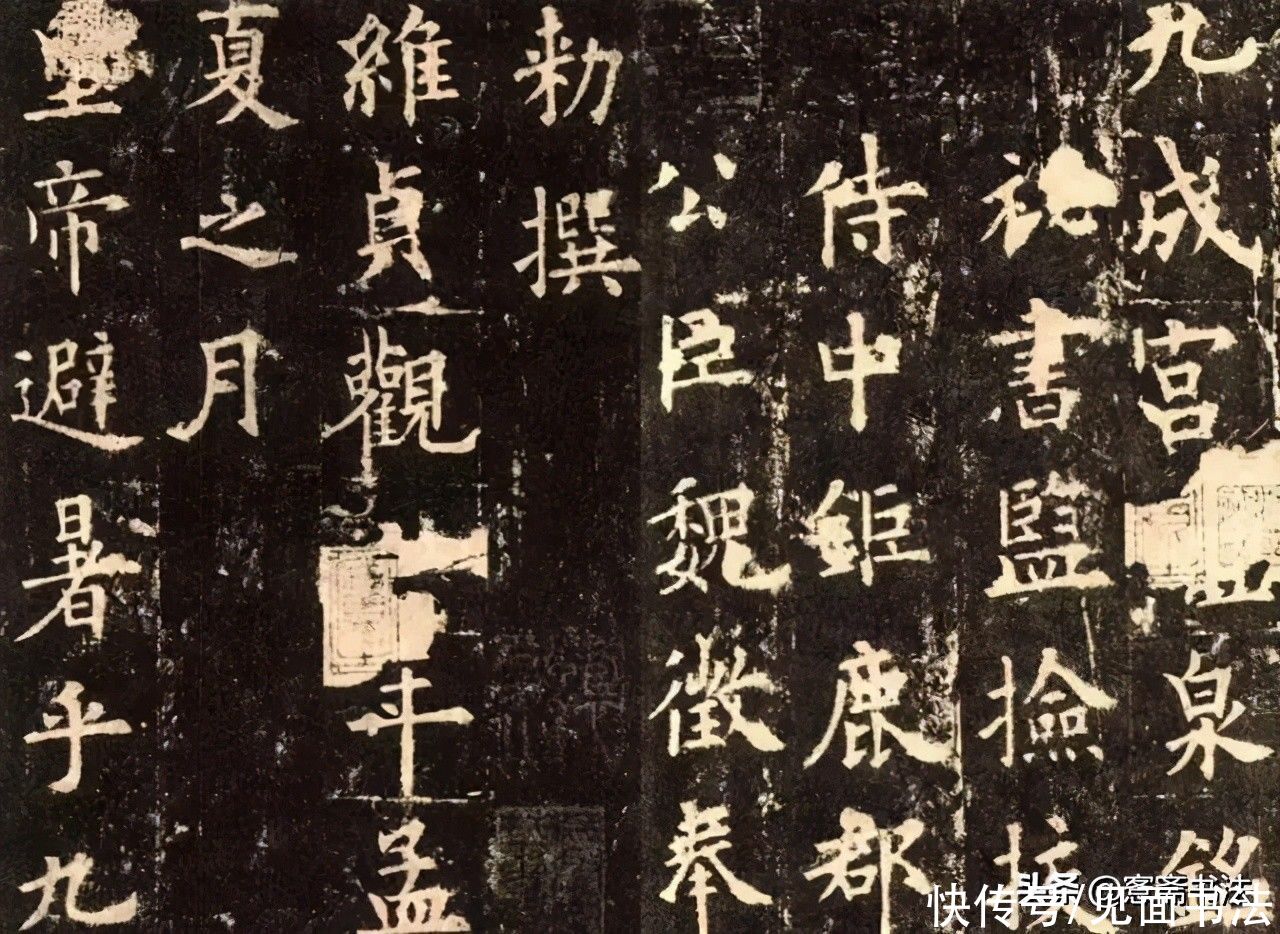 九成宮泉銘
祕書監撿挍
侍中鉅鹿郡
公臣魏徵奉
勑撰
維貞觀年孟
夏之月
皇帝避暑乎九
头条 @客斋书法
快传号/见面书法